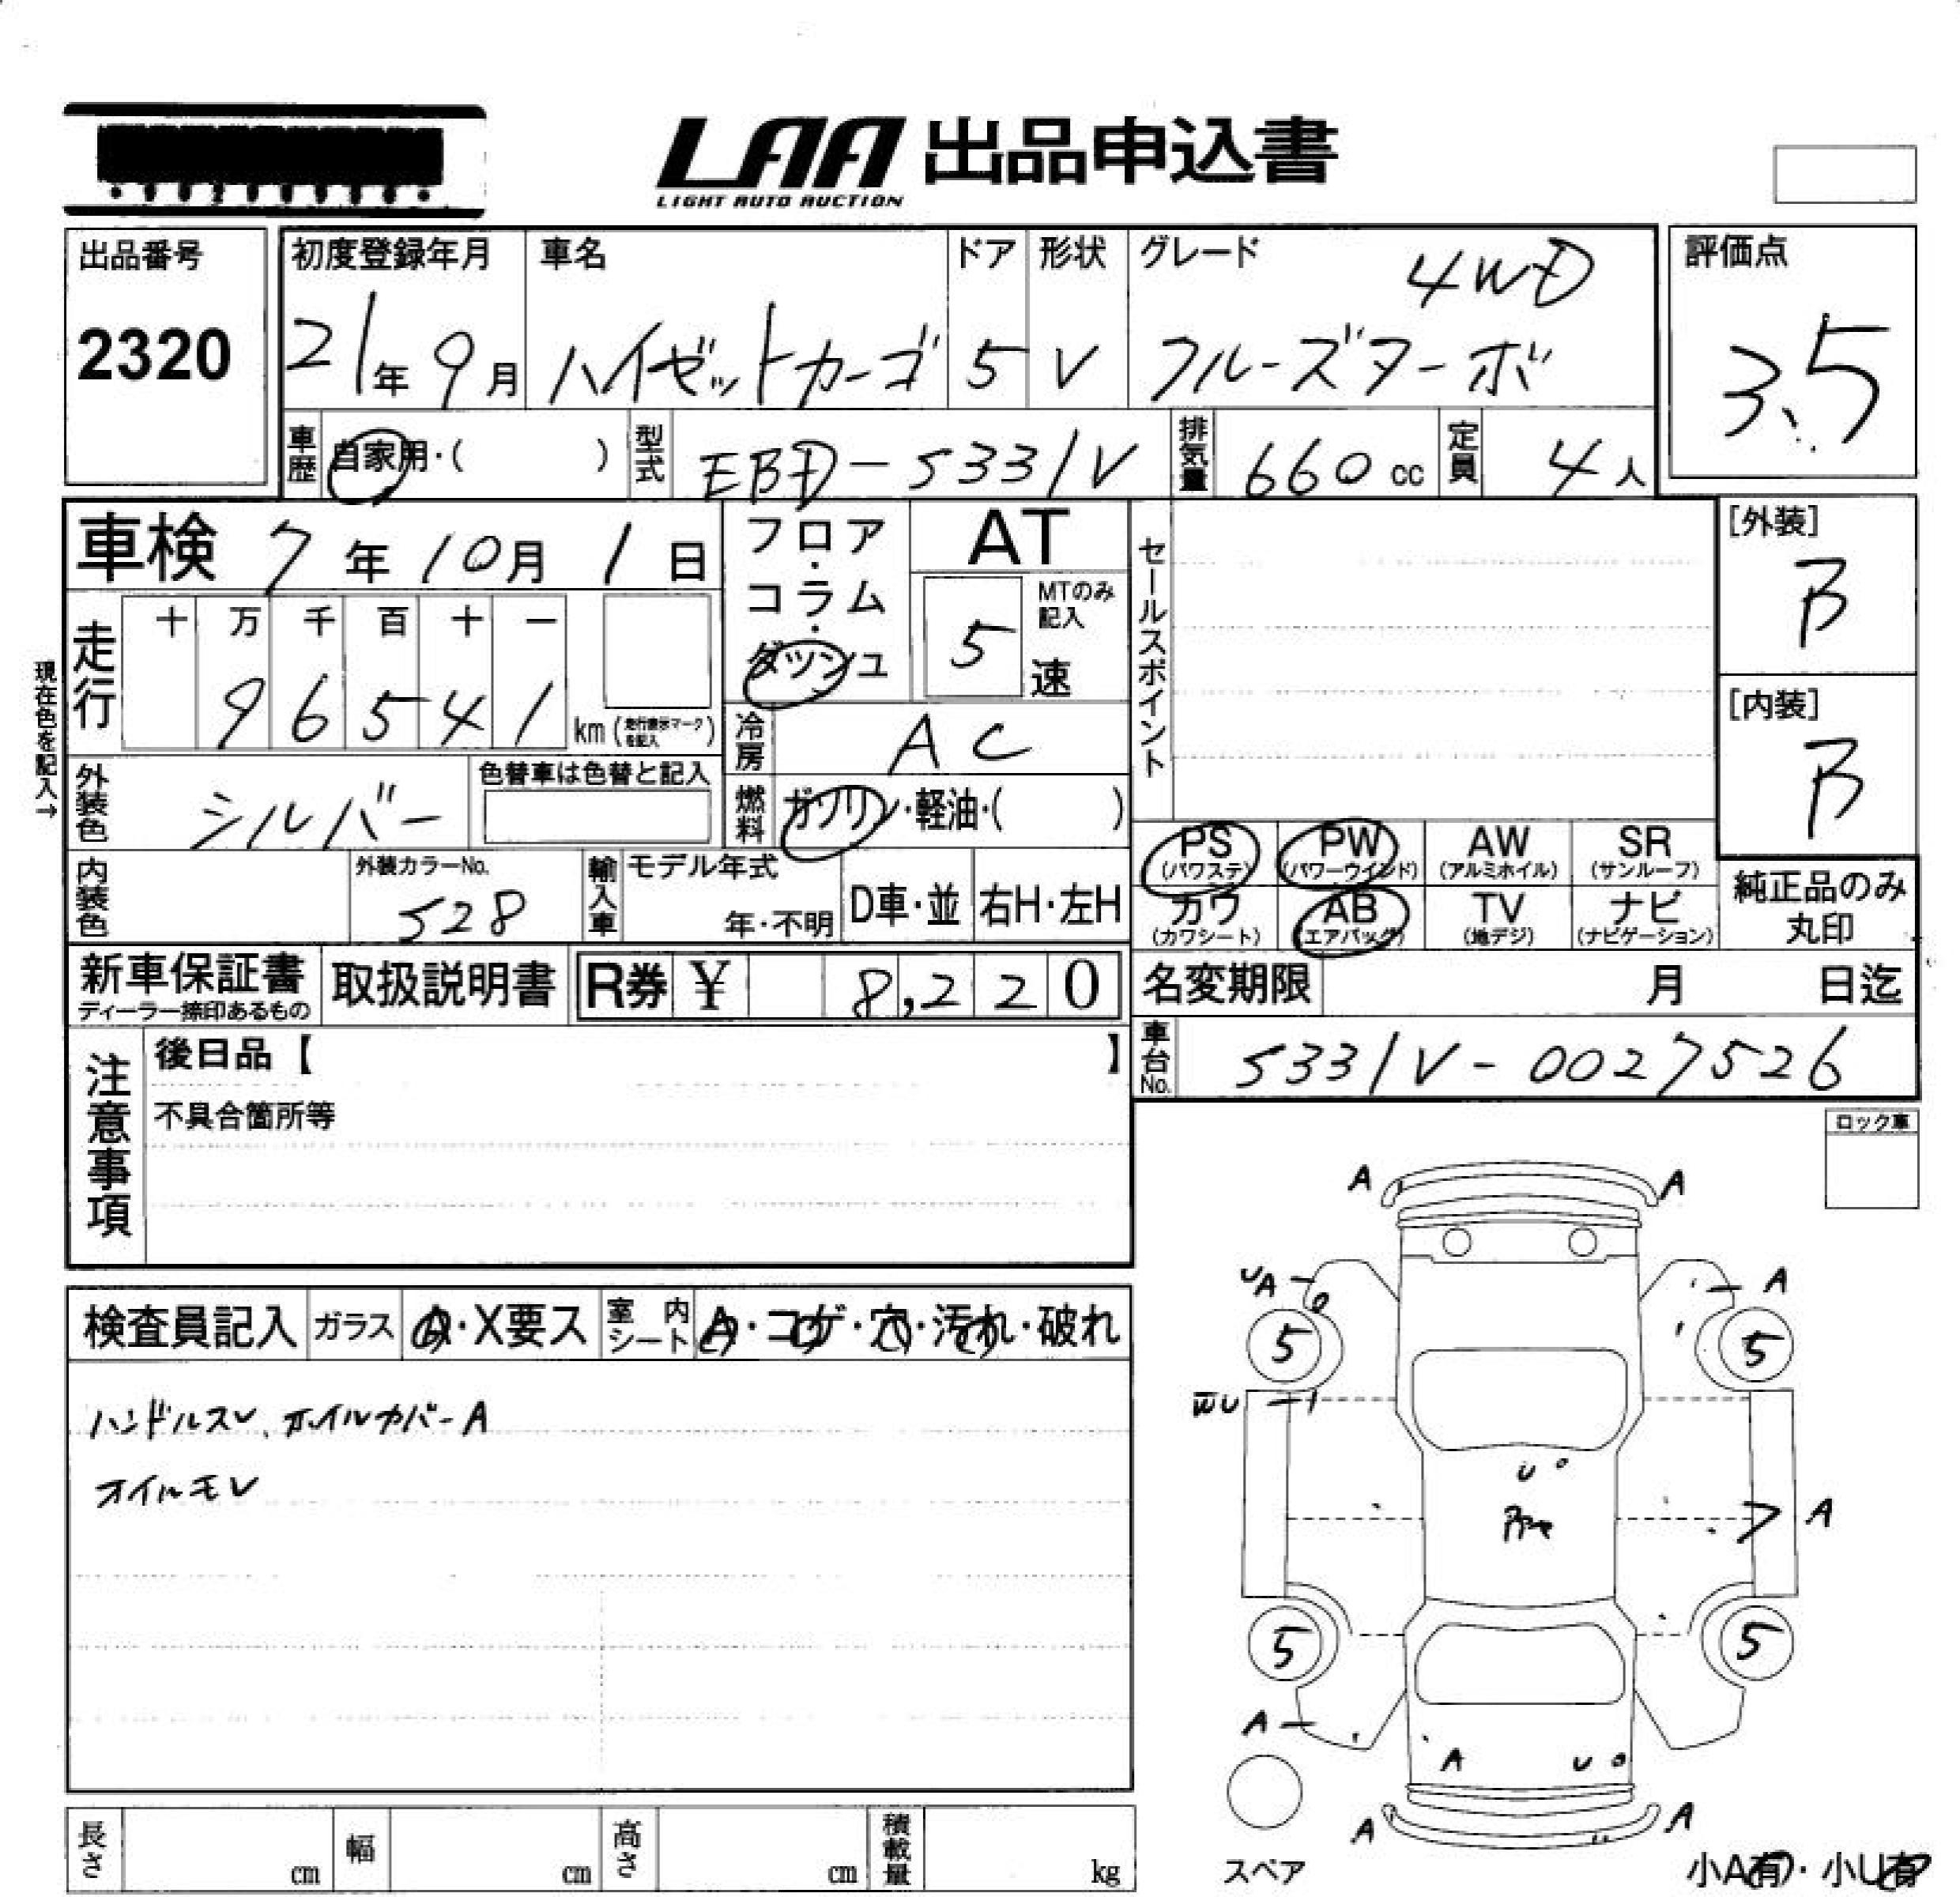 LAA 出品申込書
LIGHT AUTO AUCTION
出品番号
2320
初度登録年月
21年9月
車名
ハイゼットカーゴ
ドア
5
形状
V
グレード
4WD
クルーズターボ
評価点
3.5
車歴 自家用・( )
型式 EBD-S331V
排気量 660cc
定員 4人
車検 7年10月1日
フロア・コラム・ダッシュ
AT
MTのみ記入
5速
セールスポイント
[外装]
B
[内装]
B
現在色を記入→
走行 十 万 千 百 十 一
96541 km (走行表示マークを記入)
冷房 AC
外装色 シルバー
色替車は色替と記入
燃料 ガソリン・軽油・( )
内装色
外装カラーNo.
S28
輸入車 モデル年式
年・不明
D車・並
右H・左H
PS (パワステ)
PW (パワーウインド)
AW (アルミホイル)
SR (サンルーフ)
カワ (カワシート)
AB (エアバッグ)
TV (地デジ)
ナビ (ナビゲーション)
純正品のみ丸印
新車保証書
ディーラー捺印あるもの
取扱説明書
R券 ¥ 8,220
名変期限 月 日迄
車台No. S331V-0027526
注意事項
後日品【 】
不具合箇所等
ロック車
検査員記入 ガラス A・X要ス 室内シート A・コゲ・穴・汚れ・破れ
ハンドルスレ、ホイルカバーA
オイルモレ
A A
UA A
5 5
WU
U
A
5 5
A
A U
A A
スペア
小A有・小U有
長さ cm 幅 cm 高さ cm 積載量 kg